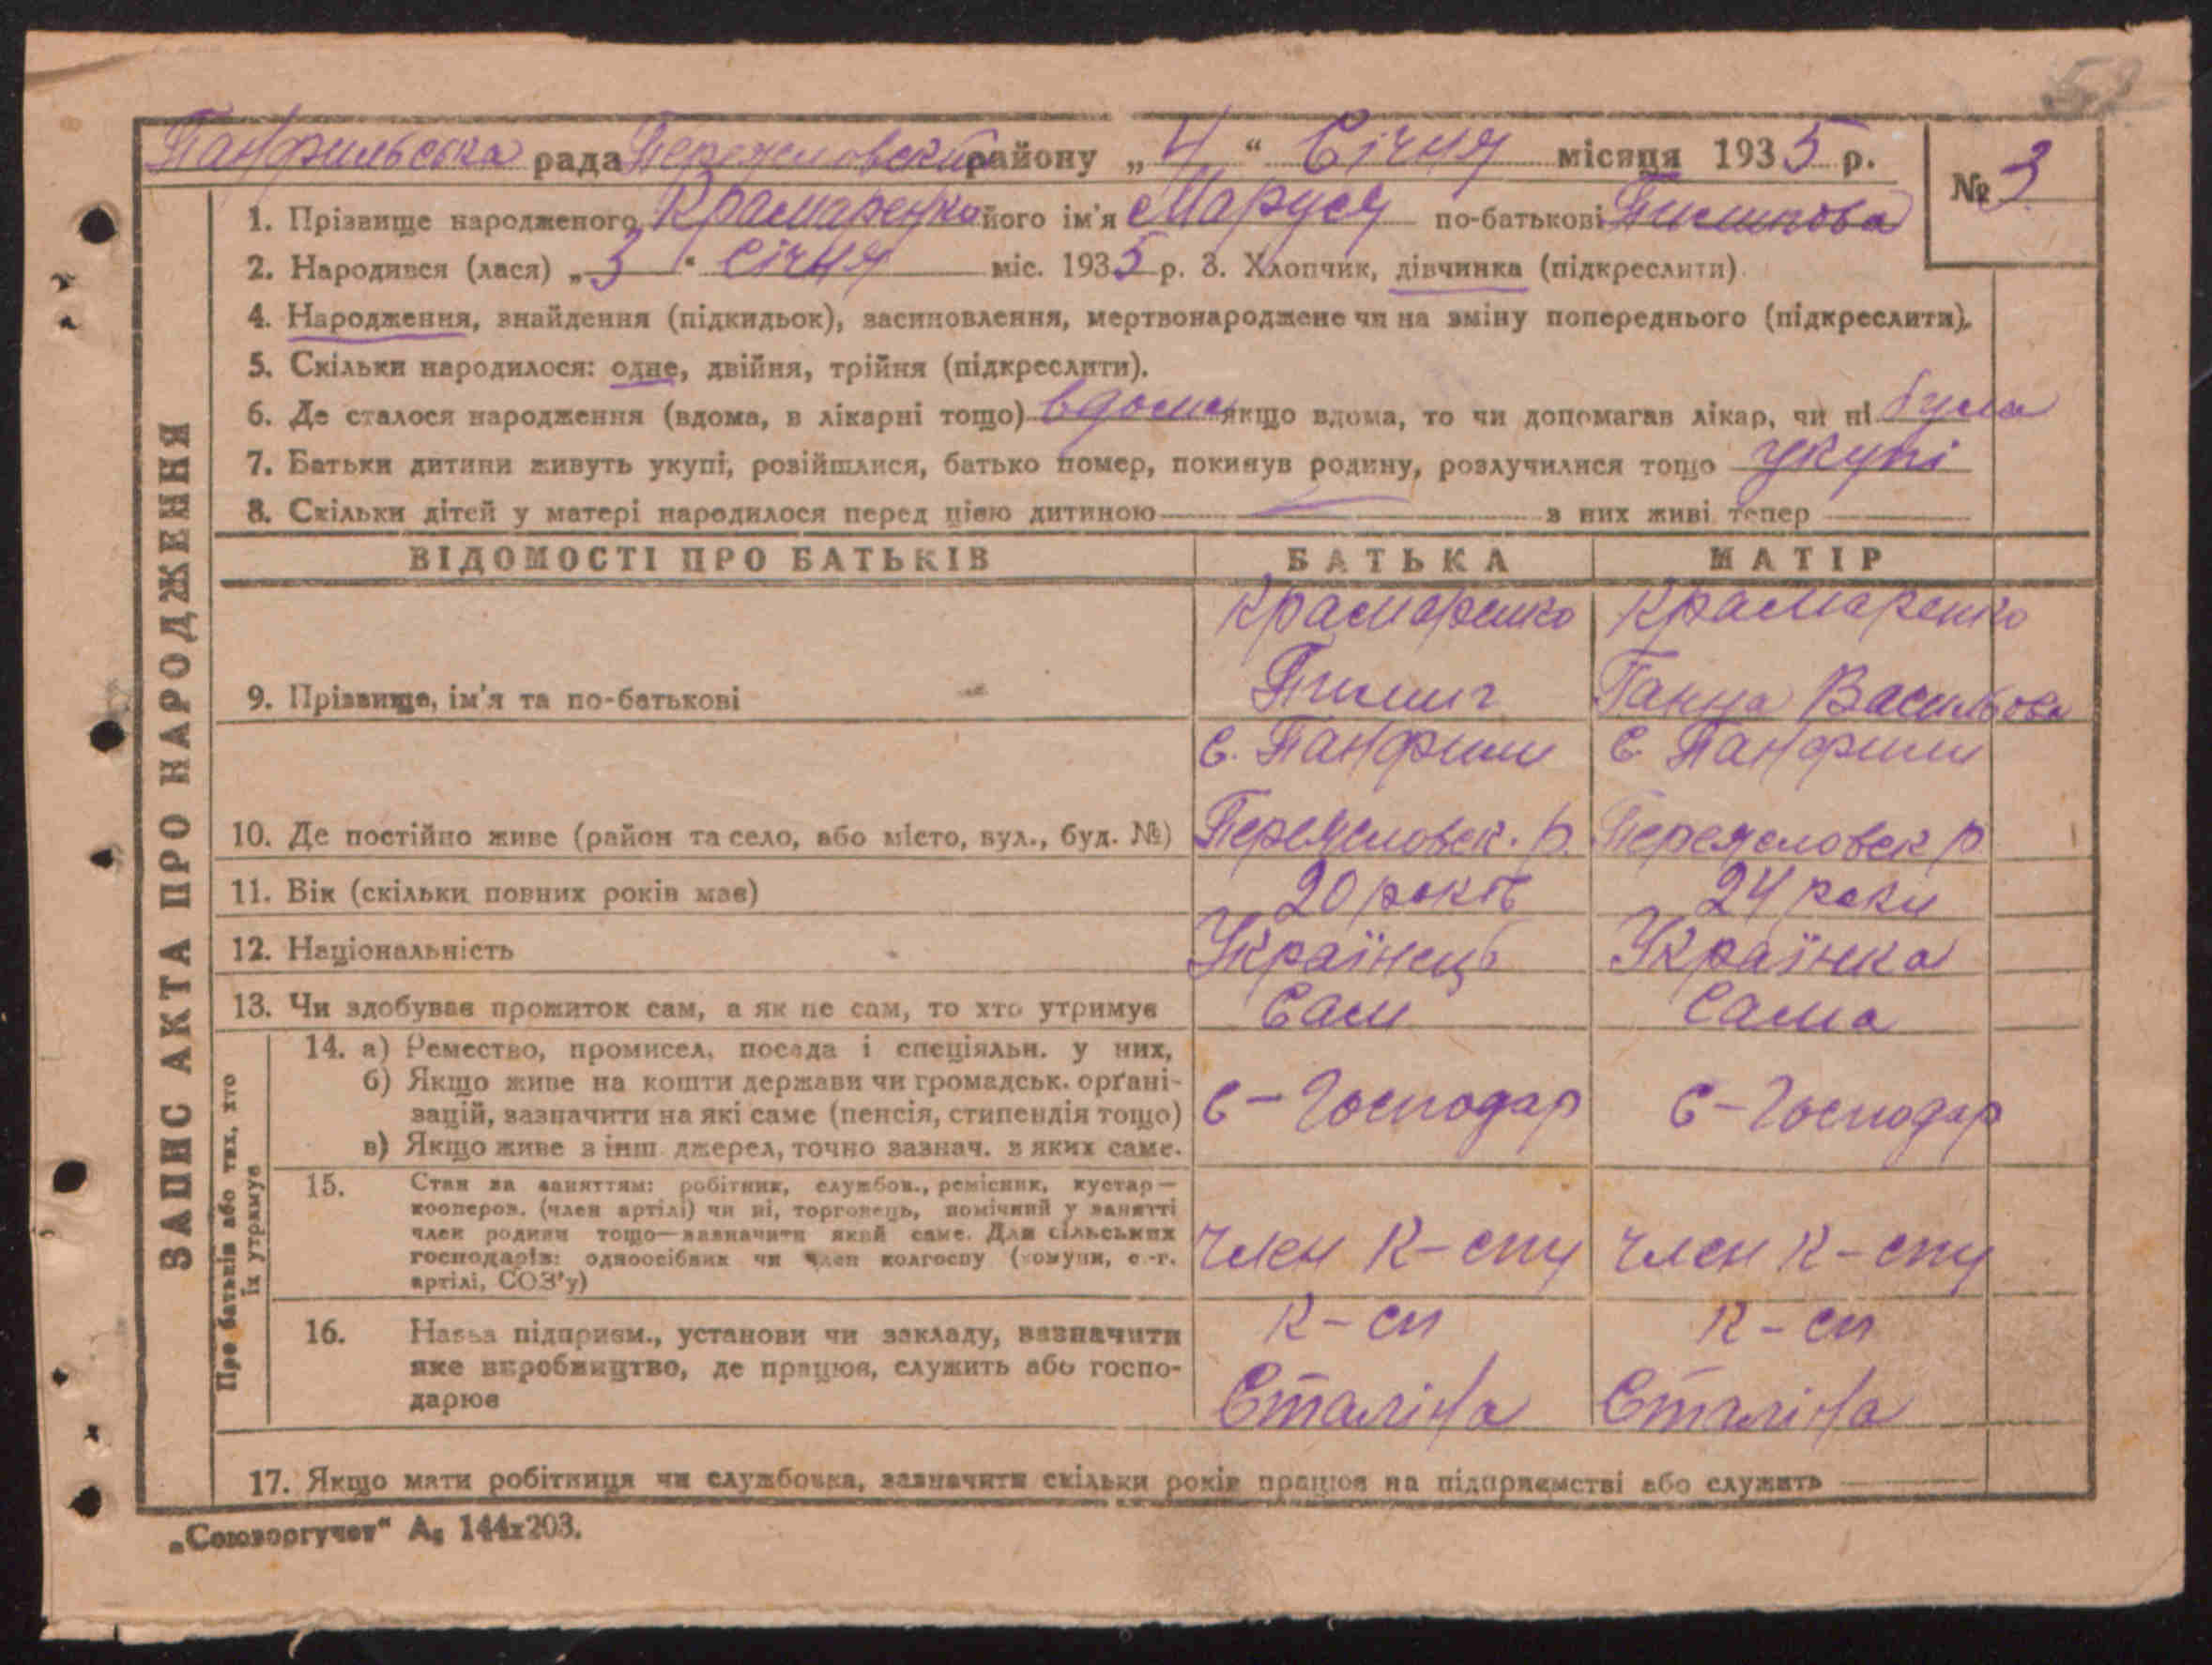 52
Панфильська рада Переяславский району „4“ Січня місяця 1935 р.
№ 3
1. Прізвище народженого Крамаренко його ім'я Маруся по-батькові Пилипова
2. Народився (лася) „3“ Січня міс. 1935 р. 3. Хлопчик, дівчинка (підкреслити)
4. Народження, знайдення (підкидьок), засиновлення, мертвонароджене чи на зміну попереднього (підкреслити).
5. Скільки народилося: одне, двійня, трійня (підкреслити).
6. Де сталося народження (вдома, в лікарні тощо) вдома якщо вдома, то чи допомагав лікар, чи ні була
7. Батьки дитини живуть укупі, розійшлися, батько помер, покинув родину, розлучилися тощо укупі
8. Скільки дітей у матері народилося перед цією дитиною — з них живі тепер —
ЗАПИС АКТА ПРО НАРОДЖЕННЯ
ВІДОМОСТІ ПРО БАТЬКІВ БАТЬКА МАТІР
Крамаренко Крамаренко
9. Прізвище, ім'я та по-батькові Пилип Ганна Васильова
с. Панфили с Панфили
10. Де постійно живе (район та село, або місто, вул., буд. №) Переясловск. р. Переясловск р.
11. Вік (скільки повних років має) 20 років 24 роки
12. Національність Українець Українка
13. Чи здобуває прожиток сам, а як не сам, то хто утримує Сам Сама
Про батьків або тих, хто їх утримує
14. а) Ремество, промисел, посада і спеціяльн. у них,
б) Якщо живе на кошти держави чи громадськ. орґані-
зацій, зазначити на які саме (пенсія, стипендія тощо) с – Господар с – Господар
в) Якщо живе з інш. джерел, точно зазнач. з яких саме.
15. Стан за заняттям: робітник, службов., ремісник, кустар—
кооперов. (член артілі) чи ні, торговець, помічний у занятті
член родини тощо—зазначити який саме. Для сільських
господарів: одноосібник чи член колгоспу (комуни, с.-г.
артілі, СОЗ'у) член к-спу член к-спу
16. Назва підприєм., установи чи закладу, зазначити к-сп к-сп
яке виробництво, де працює, служить або госпо-
дарює Сталіна Сталіна
17. Якщо мати робітниця чи службовка, зазначити скільки років працює на підприємстві або служить —
„Союзоргучет“ А₆ 144х203.